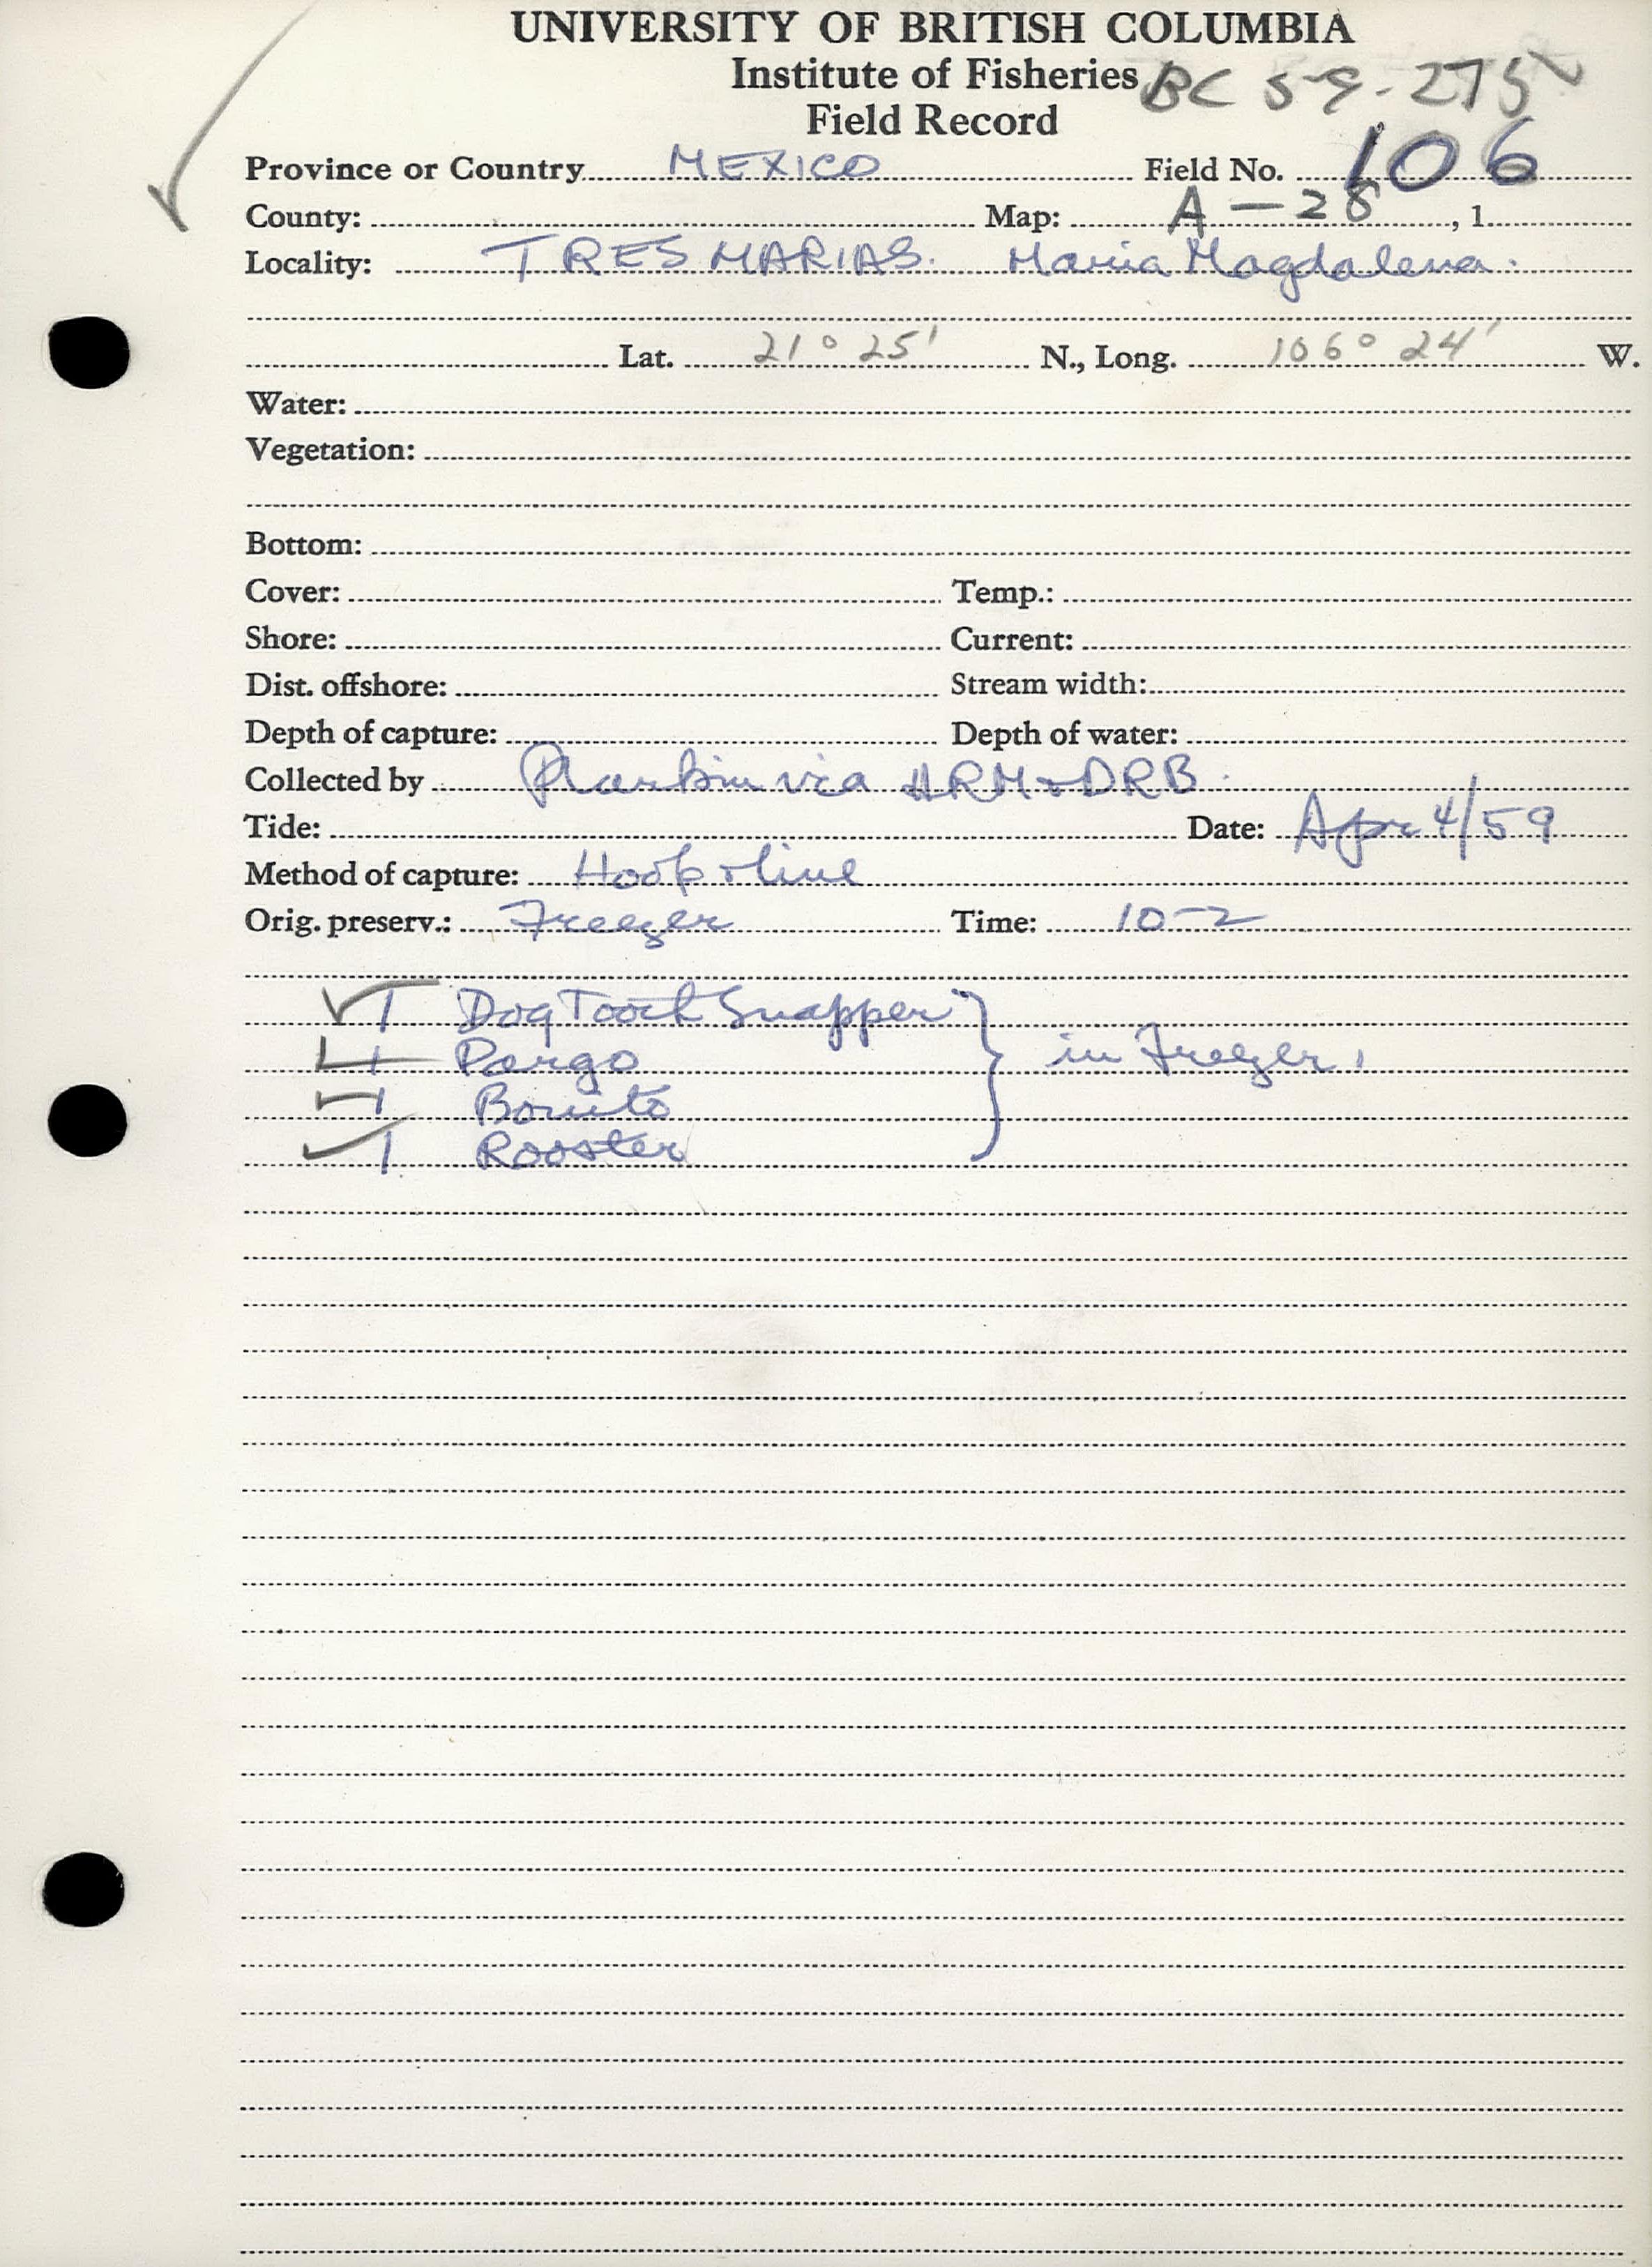 UNIVERSITY OF BRITISH COLUMBIA
Institute of Fisheries BC 59-275
Field Record
Province or Country MEXICO Field No. 106
County: Map: A-28, 1
Locality: TRES MARIAS. Maria Magdalena.
Lat. 21° 25' N., Long. 106° 24' W.
Water:
Vegetation:
Bottom:
Cover: Temp.:
Shore: Current:
Dist. offshore: Stream width:
Depth of capture: Depth of water:
Collected by via HRM + DRB.
Tide: Date: Apr 4/59
Method of capture: Hook + line
Orig. preserv.: Freezer Time: 10-2
1 Dog Tooth Snapper
1 Pargo in Freezer.
1 Bonito
1 Rooster